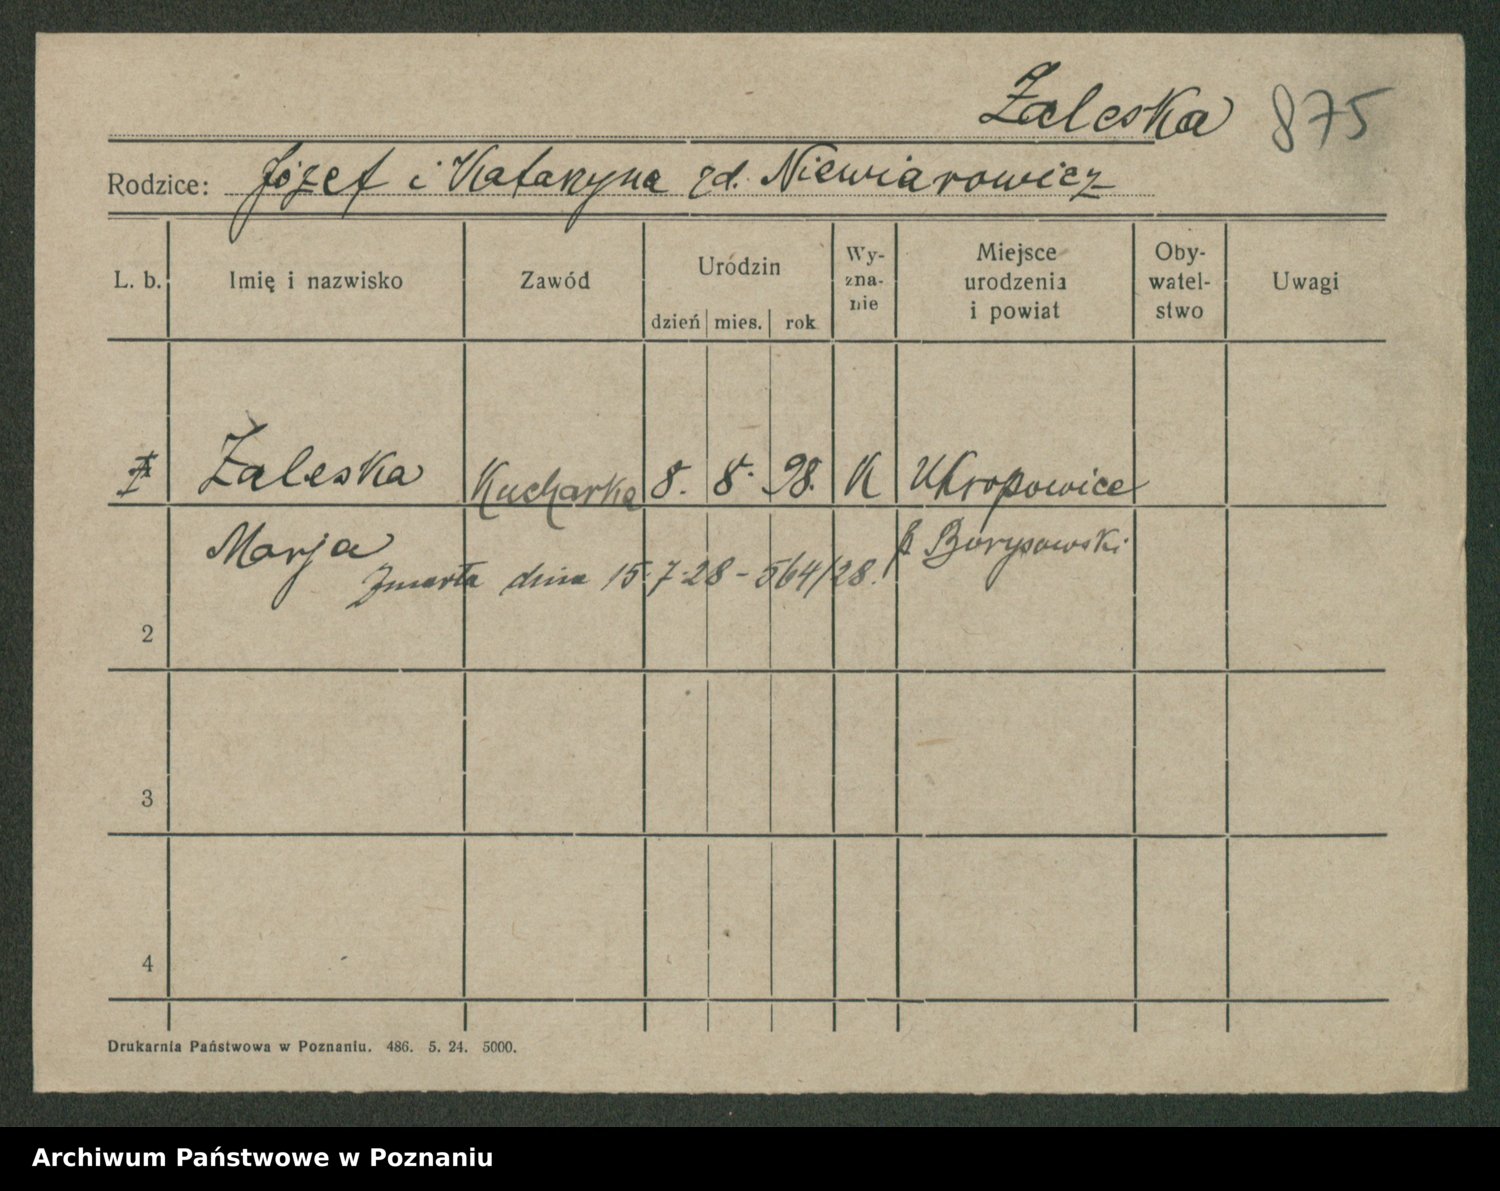 Zaleska 875
Rodzice: Józef i Katarzyna zd. Niewiarowicz
L. b. Imię i nazwisko Zawód Urodzin Wyznanie Miejsce urodzenia i powiat Obywatelstwo Uwagi
dzień mies. rok
Zaleska Kucharka 8. 8. 98. K Ukropowice
Marja p. Borysowski
Zmarła dnia 15.7.28 - 564/28.
2
3
4
Drukarnia Państwowa w Poznaniu. 486. 5. 24. 5000.
Archiwum Państwowe w Poznaniu